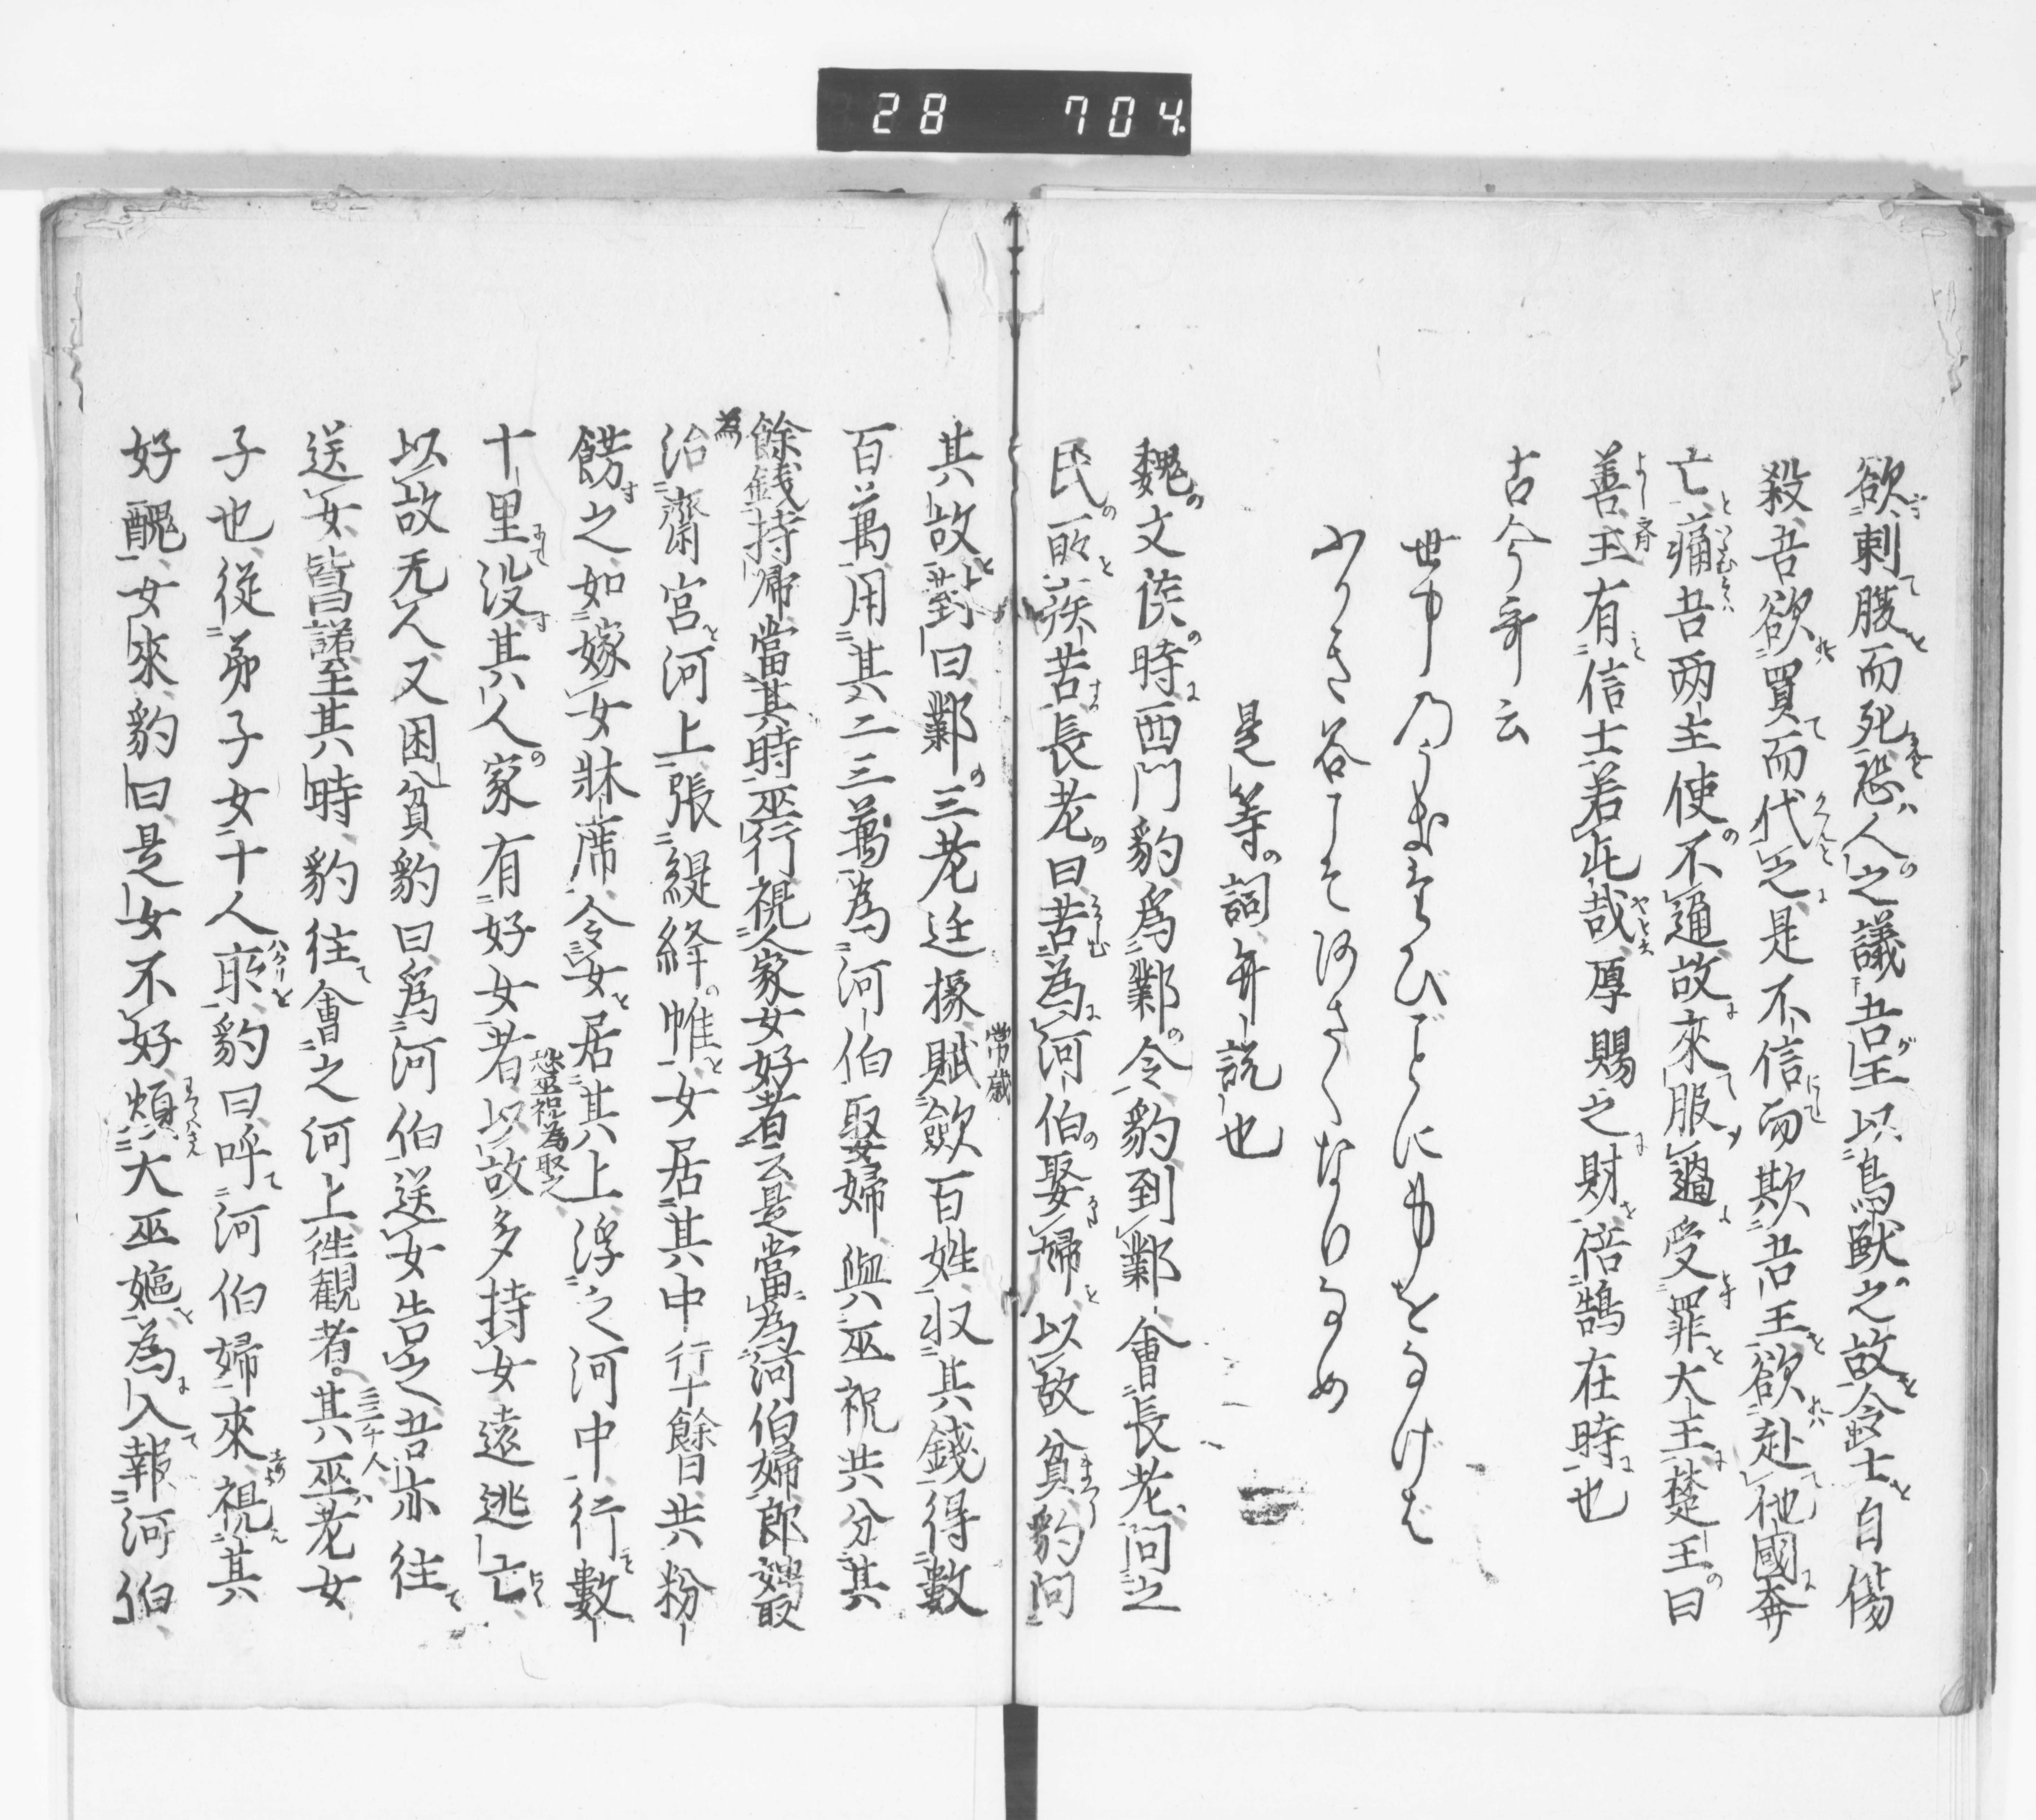 28 704
欲刺腹而死恐人之議吾王以鳥獣之故令士自傷
殺吾欲買而代之是不信而欺吾王欲赴他國奔
亡痛吾两主使不通故來服過受罪大王楚王曰
善齊王有信士若此哉厚賜之財倍鵠在時也
古今哥云
世中のうきたびごとに身をなげば
ふかき谷こそあさくなりなめ
是等詞弁説也
魏文侯時西門豹爲鄴令豹到鄴會長老問之
民所疾苦長老曰苦為河伯娶婦以故貧豹問
其故對曰鄴三老廷掾常歳賦斂百姓収其錢得數
百萬用其二三萬為河伯娶婦與巫祝共分其
餘銭持帰當其時巫行視人家女好者云是當為河伯婦郎娉取
為治齋宮河上張緹絳帷女居其中行十餘日共粉
餝之如嫁女牀席令女居其上浮之河中行數
十里没其人家有好女者恐巫祝為娶之以故多持女遠逃亡
以故无人又困貧豹曰爲河伯送女告之吾亦往
送女皆曰諾至其時豹往會之河上徃觀者三二千人其巫老女
子也從弟子女十人所豹曰呼河伯婦來視其
好醜女來豹曰是女不好煩大巫嫗為入報河伯